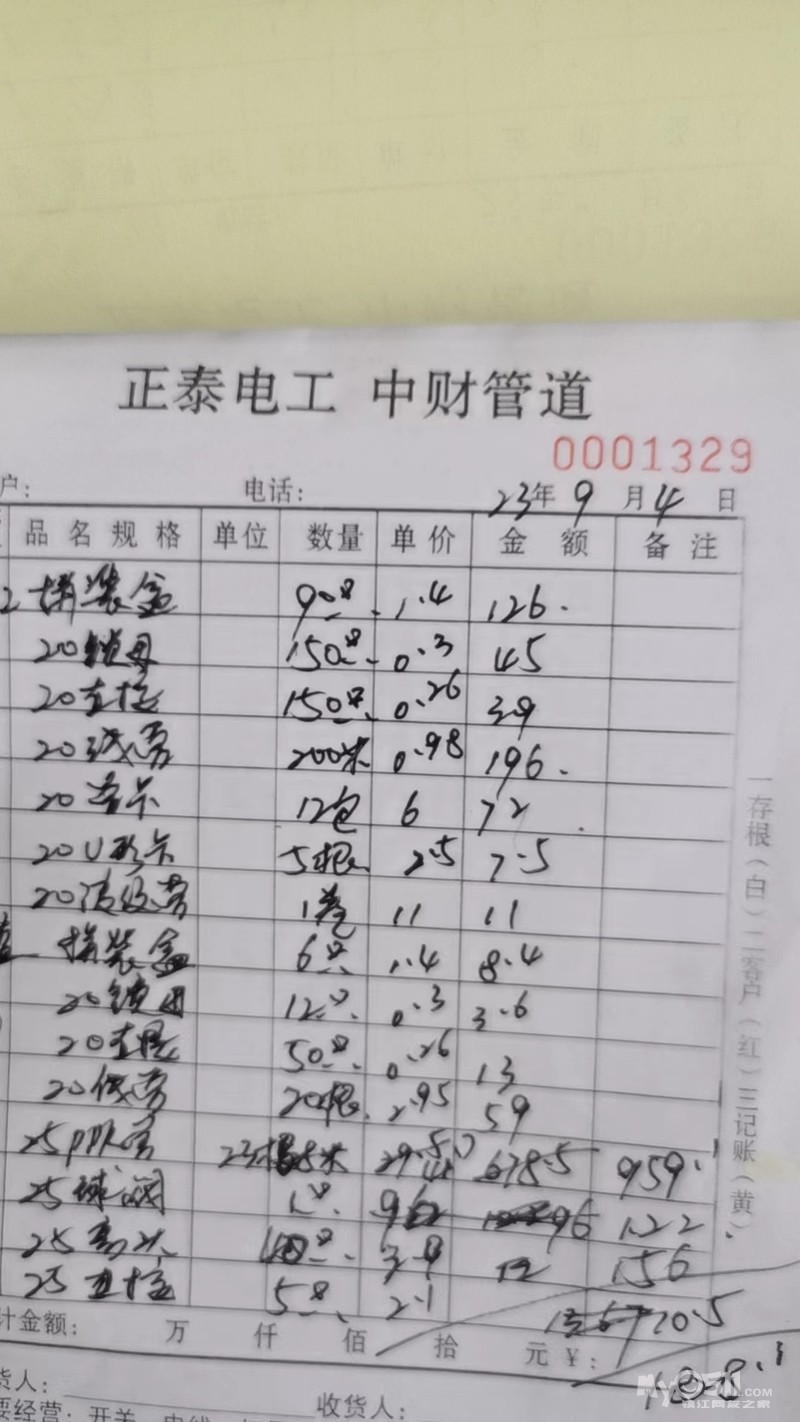 正泰电工 中财管道
0001329
户: 电话: 23年 9 月 4 日
品名规格 单位 数量 单价 金额 备注
拼装盒 90只 1.4 126.
20锁母 150只 0.3 45
20直接 150只 0.26 39
20线管 200米 0.98 196.
20管卡 12包 6 72
20U型卡 5根 2.5 7.5
20 1卷 11 11
拼装盒 6只 1.4 8.4
20锁母 12只 0.3 3.6
20直接 50只 0.26 13
20线管 20根 2.95 59
25PPR管 23根 29.5 678.5 959.
25球阀 1只 96 96 122
25弯头 40只 3.9 156
25直接 5只 2.1 10.5
计金额: 万 仟 佰 拾 元 ¥:
货人: 收货人:
要经营: 开关、电线、
一存根(白)二客户(红)三记账(黄)